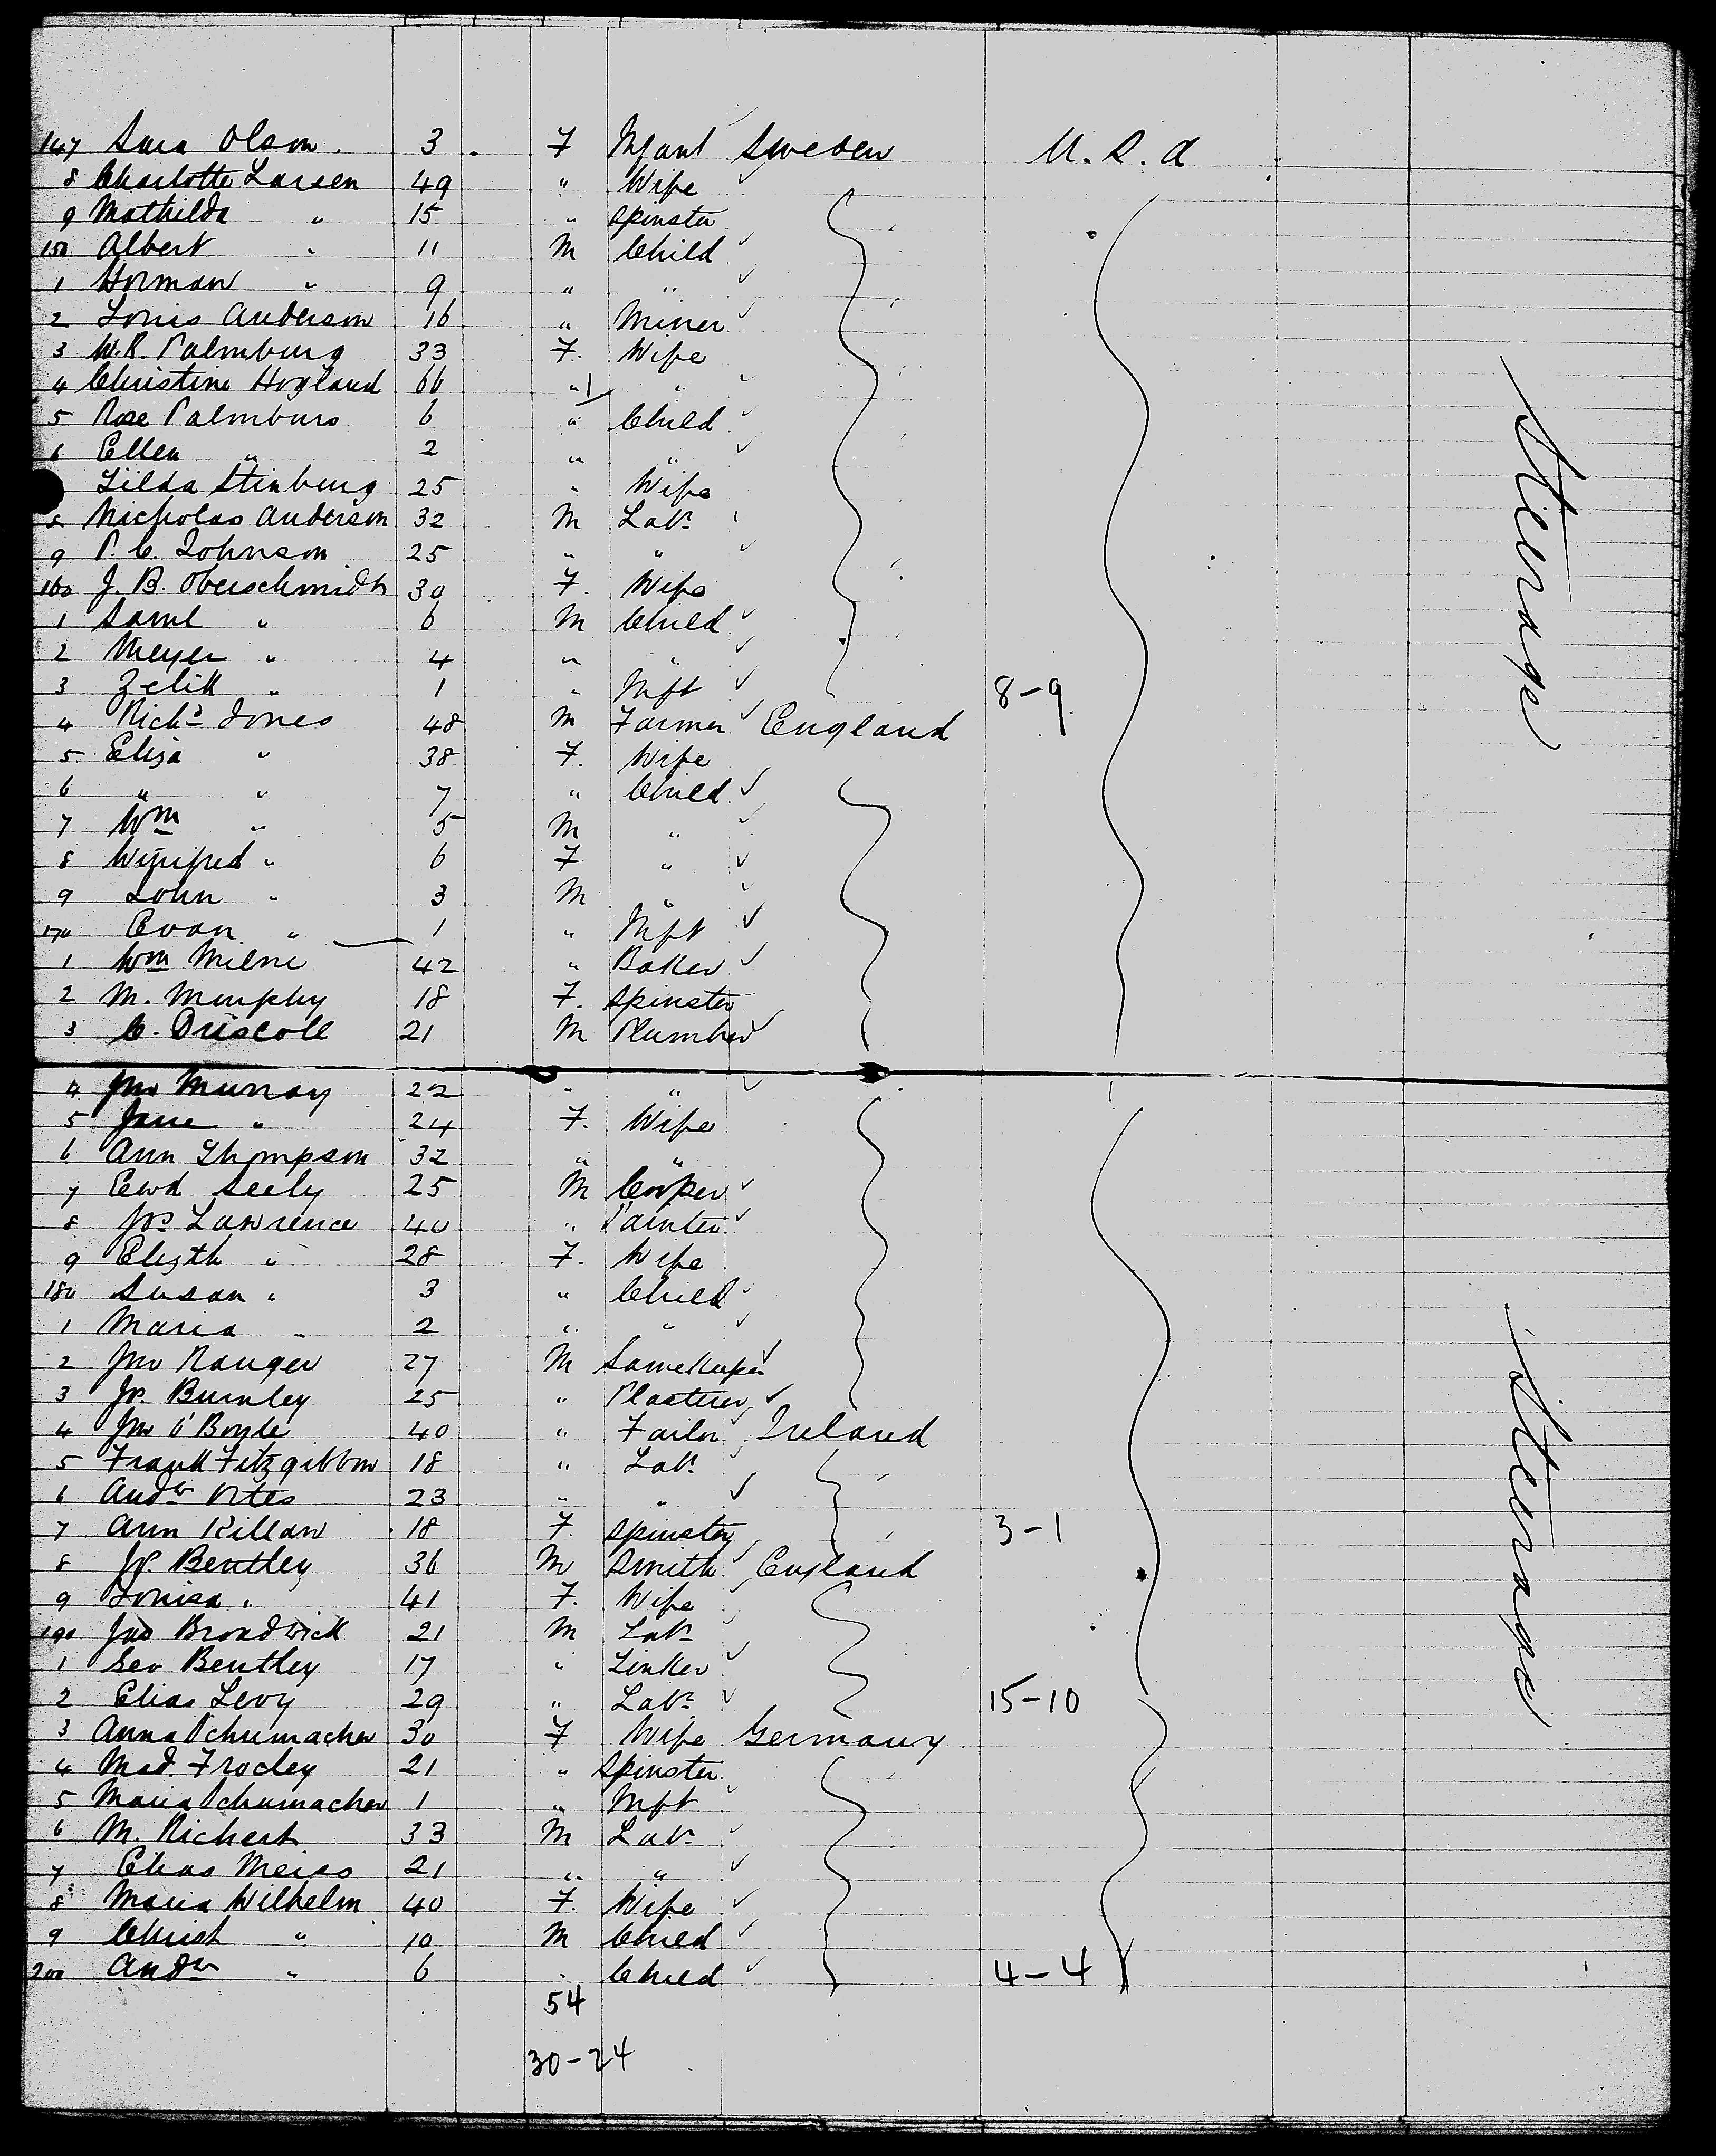 147 Sara Olson. 3 F Infant Sweden U.S.A
8 Charlotte Larsen 49 " Wife
9 Mathilda " 15 " Spinster
150 Albert " 11 M Child
1 Herman " 9 " "
2 Louis Anderson 16 " Miner
3 W.R. Palmburg 33 F. Wife
4 Christine Hogland 66 " "
5 Rose Palmburg 6 " Child
6 Ellen " 2 " "
Lilda Stinburg 25 " Wife
8 Nicholas Anderson 32 M Labr
9 P. C. Johnson 25 " "
160 J. B. Oberschmidt 30 F. Wife
1 Saml " 6 M Child
2 Meyer " 4 " "
3 Zelik " 1 " Inft 8-9
4 Richd Jones 48 M Farmer England
5 Eliza " 38 F. Wife
6 " " 7 " Child
7 Wm " 5 M "
8 Winifred " 6 F "
9 John " 3 M "
170 Evan " 1 " Inft
1 Wm Milne 42 " Baker
2 M. Murphy 18 F. Spinster
3 C. Driscoll 21 M Plumber
Steerage
4 Jno Murray 22 " "
5 Jane " 24 F. Wife
6 Ann Thompson 32 " "
7 Edwd Seely 25 M Cooper
8 Jos Lawrence 40 " Painter
9 Elizth " 28 F. Wife
180 Susan " 3 " Child
1 Maria " 2 " "
2 Jno Ranger 27 M Gamekeeper
3 Js. Burnley 25 " Plasterer
4 Jno O'Boyle 40 " Tailor Ireland
5 Frank Fitzgibbon 18 " Labr
6 Andw 23 " "
7 Ann Killan 18 F. Spinster 3-1
8 Js. Bentley 36 M Smith England
9 Louisa " 41 F. Wife
190 Jno Broadwick 21 M Labr
1 Geo Bentley 17 " Tinker
2 Elias Levy 29 " Labr 15-10
3 Anna Schumacher 30 F Wife Germany
4 Mad. Froley 21 " Spinster
5 Maria Schumacher 1 " Inft
6 M. Richert 33 M Labr
7 Chas Meiss 21 " "
8 Maria Wilhelm 40 F. Wife
9 Christ " 10 M Child
200 Andw " 6 " Child 4-4
Steerage
54
30-24